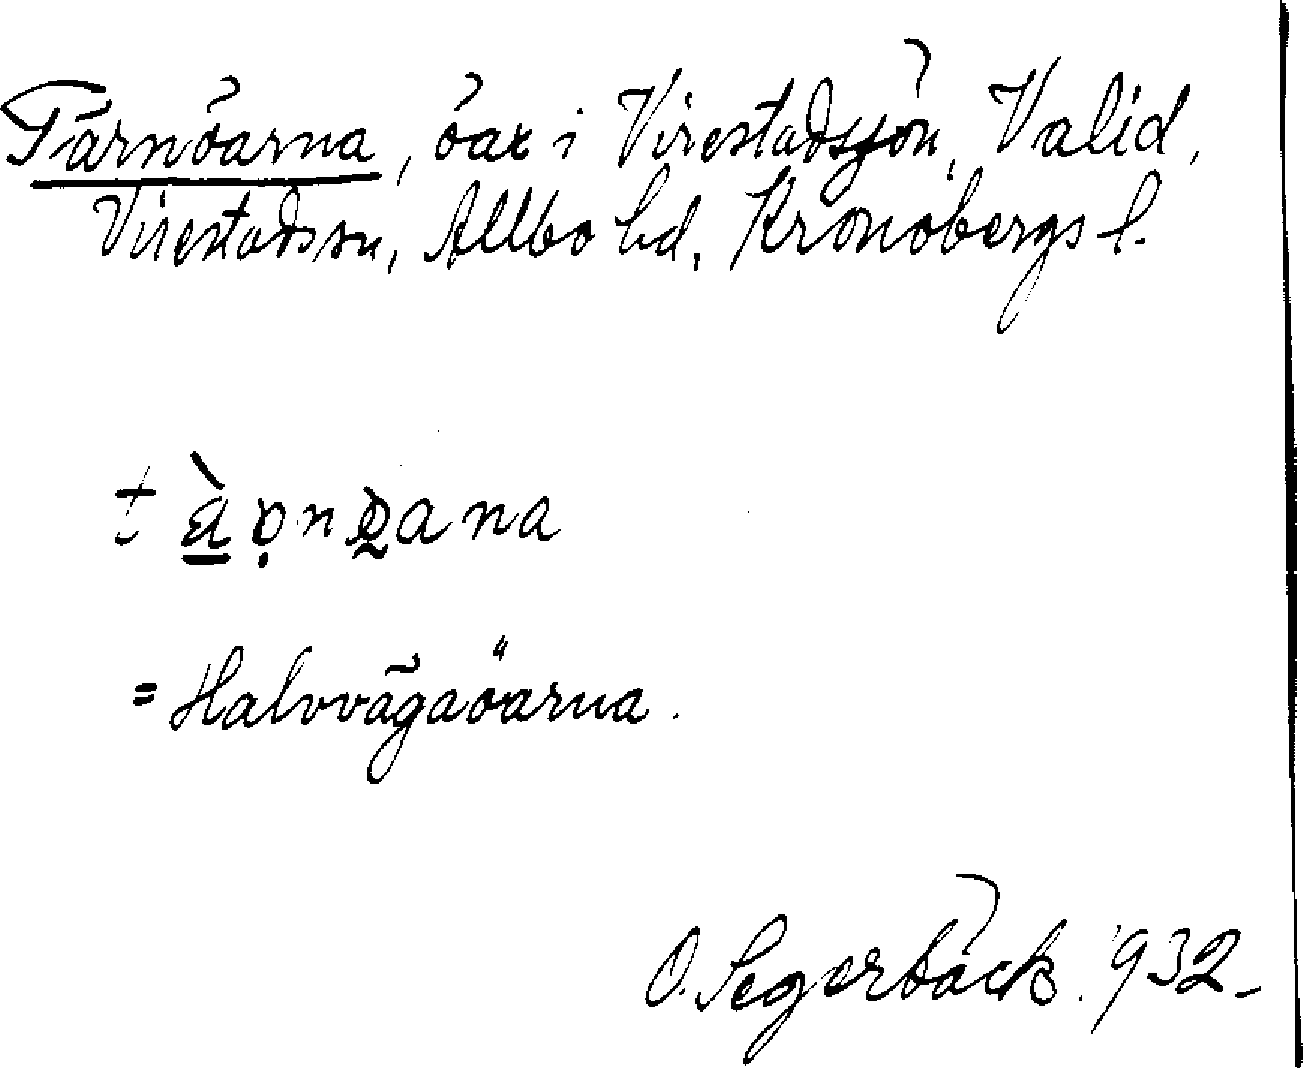 Tärnöarna, öar i Virestadsjön, Valid,
Virestads sn, Allbo hd, Kronobergs l.
= Halvvägaöarna.
O. Segerbäck. 1932.